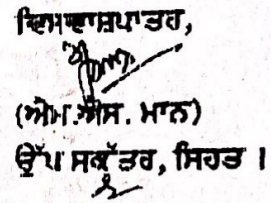 ਵਿਸ਼ਵਾਸ਼ਪਾਤਰ,
(ਐਮ.ਐਸ. ਮਾਨ)
ਉੱਪ ਸਕੱਤਰ, ਸਿਹਤ ।